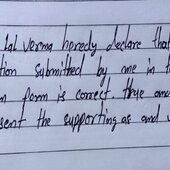 lal verma hereby declare that
tion submitted by me in t
m form is correct. true an
sent the supporting as and